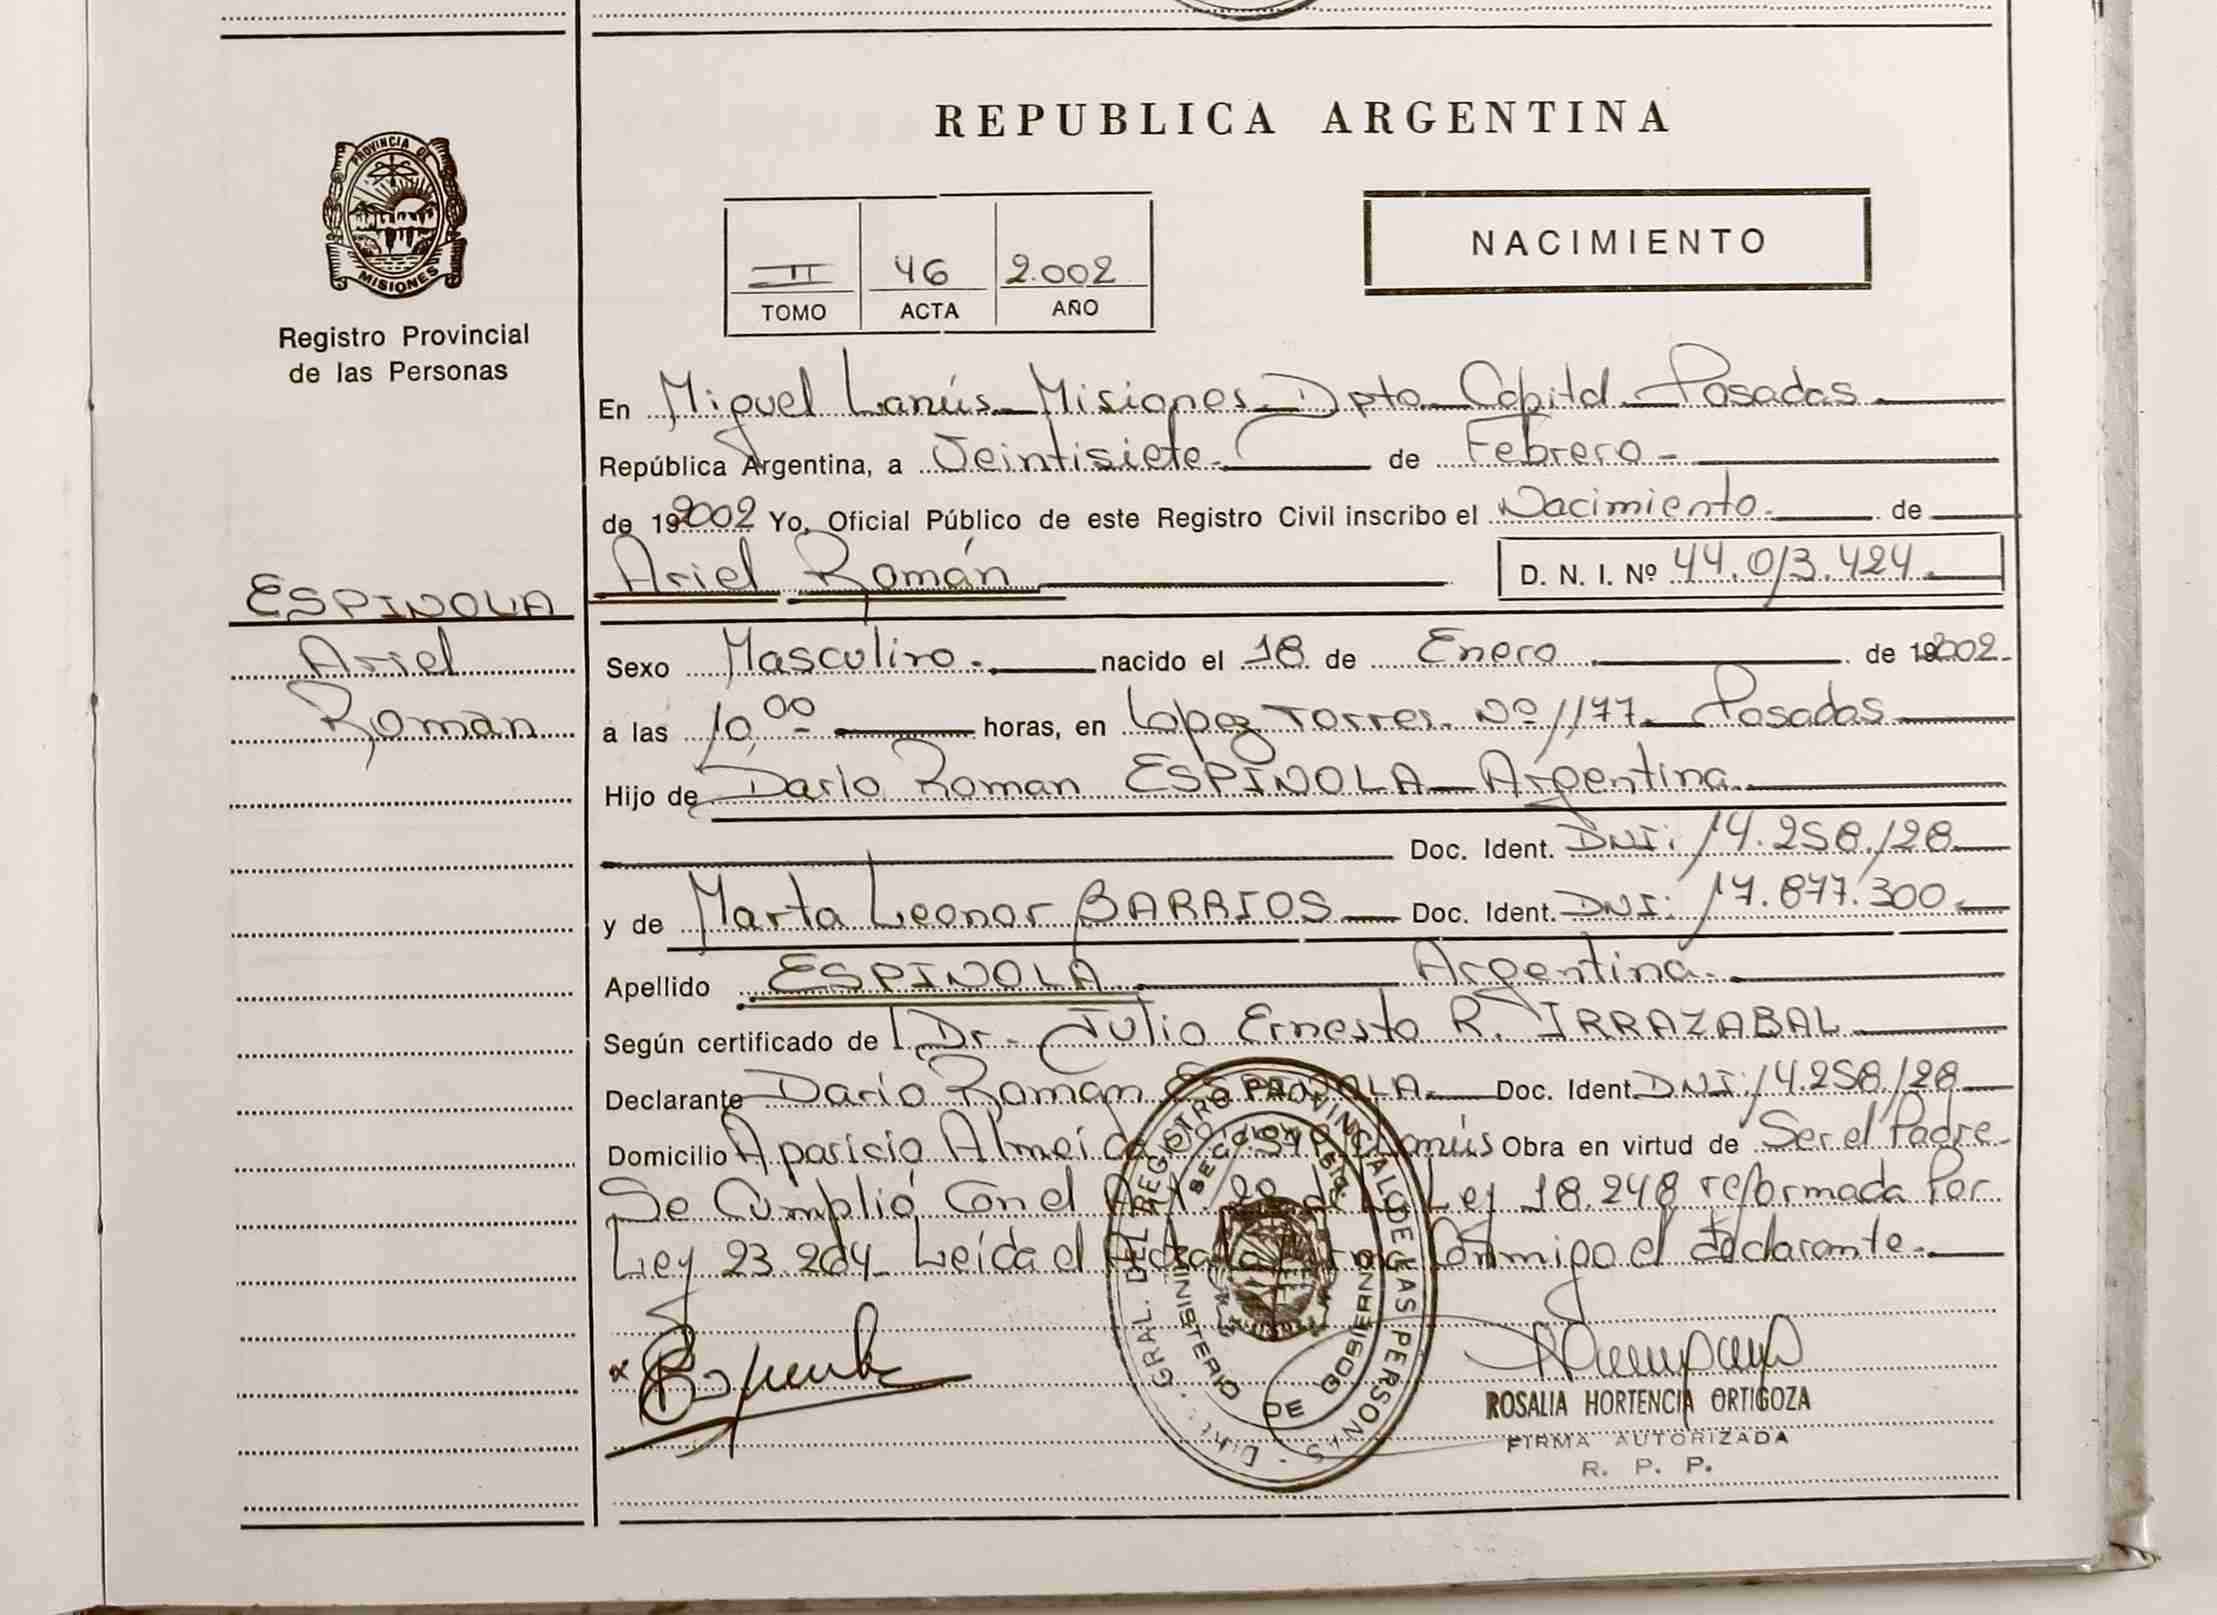 REPUBLICA ARGENTINA
PROVINCIA DE
MISIONES
Registro Provincial
de las Personas
NACIMIENTO
II 46 2.002
TOMO ACTA AÑO
En Miguel Lanús - Misiones - Dpto Capital - Posadas
República Argentina, a Veintisiete de Febrero -
de 192002 Yo, Oficial Público de este Registro Civil inscribo el Nacimiento de
Ariel Román D. N. I. Nº 44.013.424.
ESPINOLA
Ariel
Roman
Sexo Masculino. nacido el 18 de Enero de 192002.
a las 10 00 horas, en Lopez Torres. Nº 1177 - Posadas
Hijo de Dario Roman ESPINOLA - Argentina
Doc. Ident. DNI: 14.258.128
y de Marta Leonor BARRIOS Doc. Ident. DNI: 17.877.300.
Apellido ESPINOLA Argentina.
Según certificado de Dr. Julio Ernesto R. IRRAZABAL
Declarante Dario Roman ESPINOLA. Doc. Ident. DNI: 14.258.128
Domicilio Aparicio Almeida Lanús Obra en virtud de Ser el Padre.
Se Cumplió Con el Art. 20 de Ley 18.248 reformada Por
Ley 23.264 - Leída el Acta la Firma Conmigo el declarante.
DIR. GRAL. DEL REGISTRO PROVINCIAL DE LAS PERSONAS
MINISTERIO DE GOBIERNO
ROSALIA HORTENCIA ORTIGOZA
FIRMA AUTORIZADA
R. P. P.